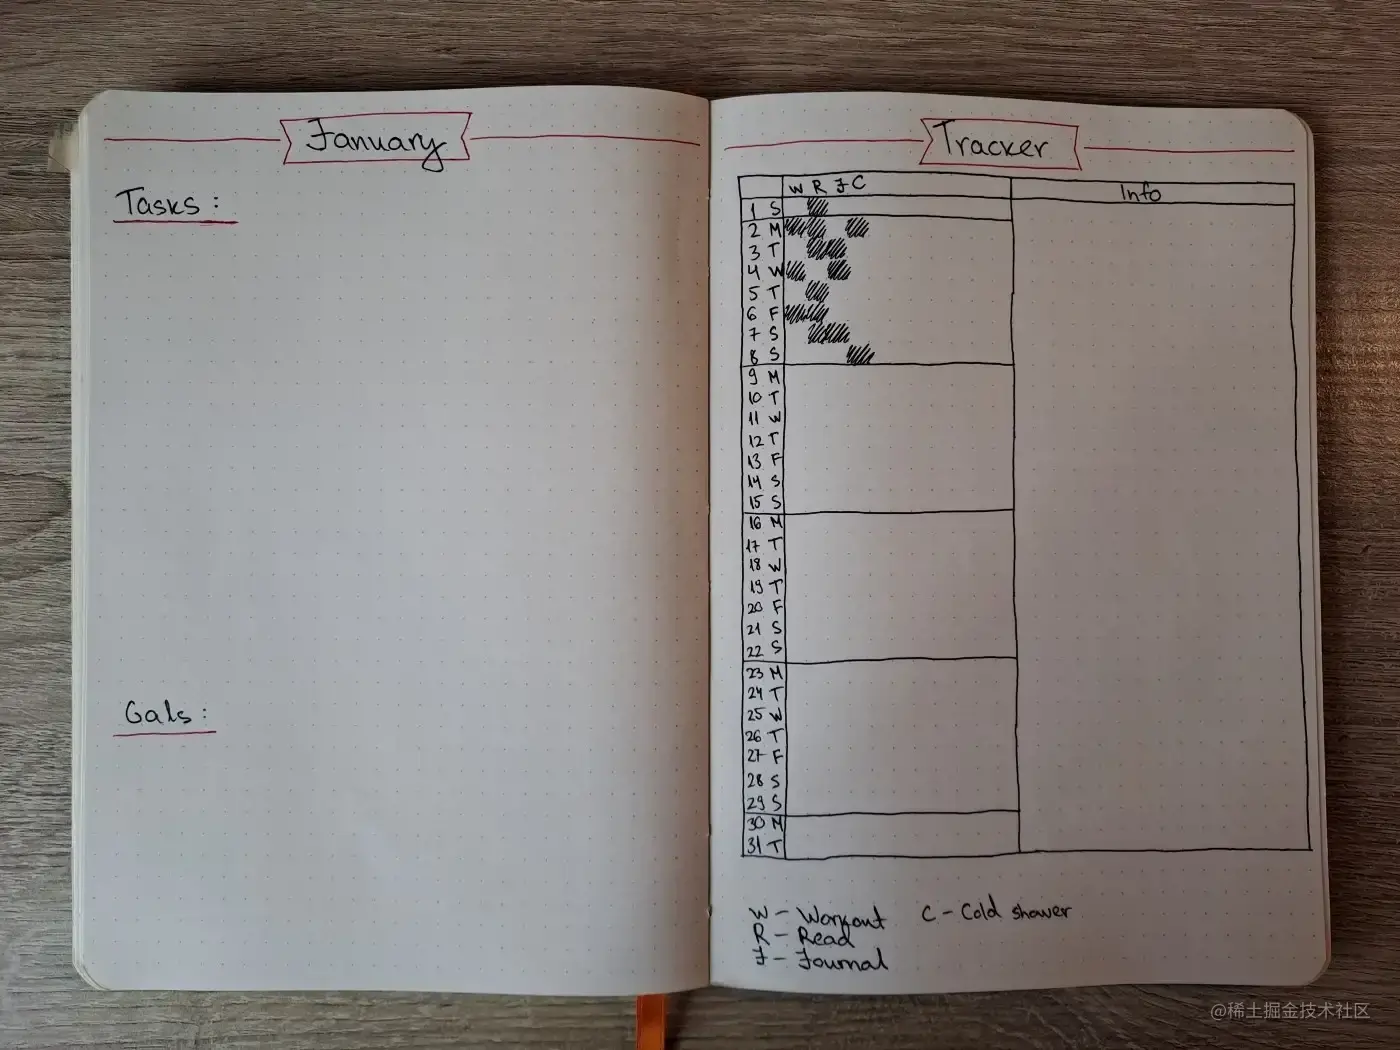 January
Tasks :
Gals :
Tracker
W R J C
Info
1 S
2 M
3 T
4 W
5 T
6 F
7 S
8 S
9 M
10 T
11 W
12 T
13 F
14 S
15 S
16 M
17 T
18 W
19 T
20 F
21 S
22 S
23 M
24 T
25 W
26 T
27 F
28 S
29 S
30 M
31 T
W - Workout C - Cold shower
R - Read
J - Journal
@稀土掘金技术社区